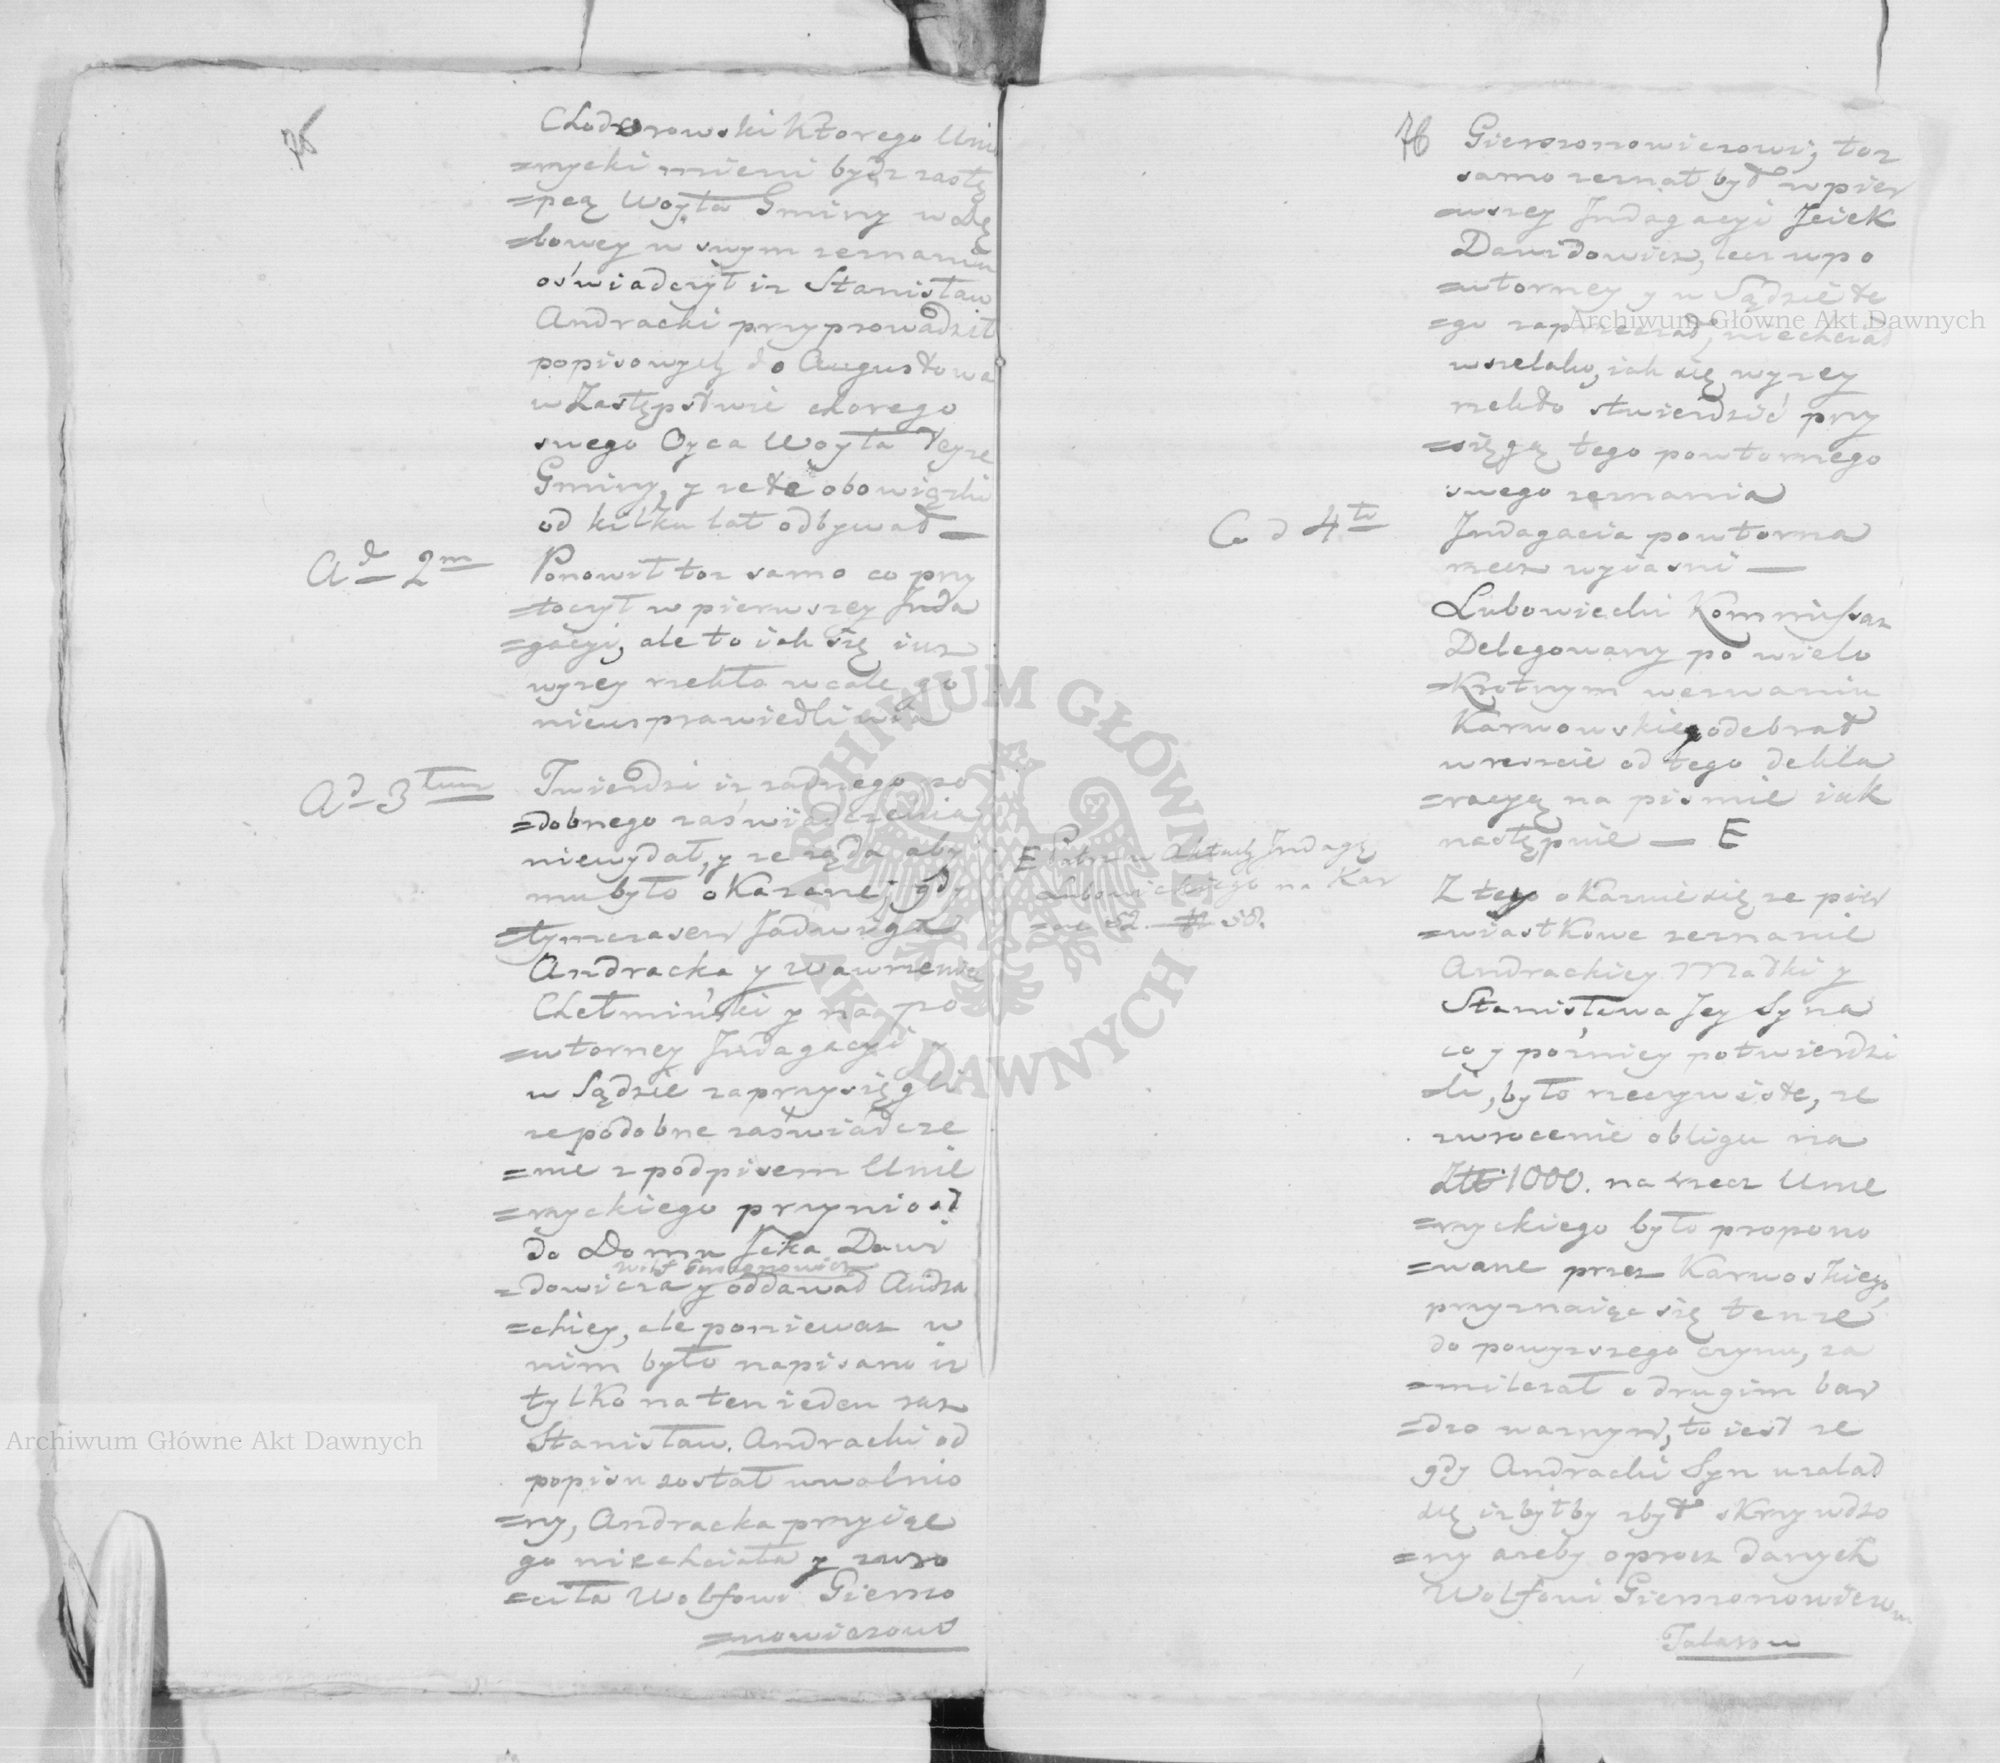 75
Chodorowski Ktorego Unie
=rzycki mieni bydz zastę
=pcą Woyta Gminy w Dę
=bowey w swym zeznaniu
oświadczył iz Stanisław
Andracki przyprowadził
popisowych do Augustowa
w Zastępstwie chorego
swego Oyca Woyta Teyze
Gminy, y ze te obowiązki
od kilku lat odbywał —
Ad 2m Ponowił toz samo co przy
=toczył w pierwszey Inda
=gacyi, ale to iak się iuz
wyzey rzekło wcale go
nieusprawiedliwia
Ad 3tium Twierdzi iz zadnego po
=dobnego zaświadczenia
niewydał, y ze ząda aby
mu było okazane; gdy
=tymczasem Jadwiga
Andracka y Wawrzeniec
Chełmiński y na po
=wtorney Indagacyi y
w Sądzie zaprzysięgli
ze podobne zaświadcze
=nie z podpisem Unie
=rzyckiego przyniosł
do Domu Icka Dawi
Wolf Gierszonowicz
=dowicza y oddawał Andra
=ckiey, ale poniewaz w
nim było napisano iz
tylko na ten ieden raz
Stanisław Andracki od
popisu został uwolnio
=ny, Andracka przyiąc
go niechciała y zwro
=ciła Wolfowi Gierszo
=nowiczowi
76
Gierszonowiczowi; toz
samo zeznał był w pier
=wszey Indagacyi Jciek
Dawidowicz, lecz w po
=wtorney y w Sądzie te
=go zaprzeczał, niechciał
wszelako, iak się wyzey
rzekło stwierdzić przy
=sięgą tego powtornego
swego zeznania
Co d 4to Indagacia powtorna
rzecz wyiasni —
Lubowiecki Kommissarz
Delegowany po wielo
=Krotnym wezwaniu
Karwowskiego odebrał
wreszcie od tego dekla
=racyą na pismie iak
następnie — E
E Patrz w Aktach Indagę
Lubowieckiego na Kar
=cie 52. 58.
Z tego okazuie się ze pier
=wiastkowe zeznanie
Andrackiey Matki y
Stanisława Jey Syna
co y pózniey potwierdzi
=li, było rzeczywiste, ze
zwrocenie obligu na
Złt 1000. na rzecz Unie
=rzyckiego było propono
=wane przez Karwoskiego,
przyznaiąc się tenze
do powyzszego czynu, za
=milczał o drugim bar
=dzo waznym, to iest ze
gdy Andracki Syn uzalał
się izbyłby zbyt skrzywdzo
=ny azeby oprocz danych
Wolfowi Gierszonowiczowi
Talarow